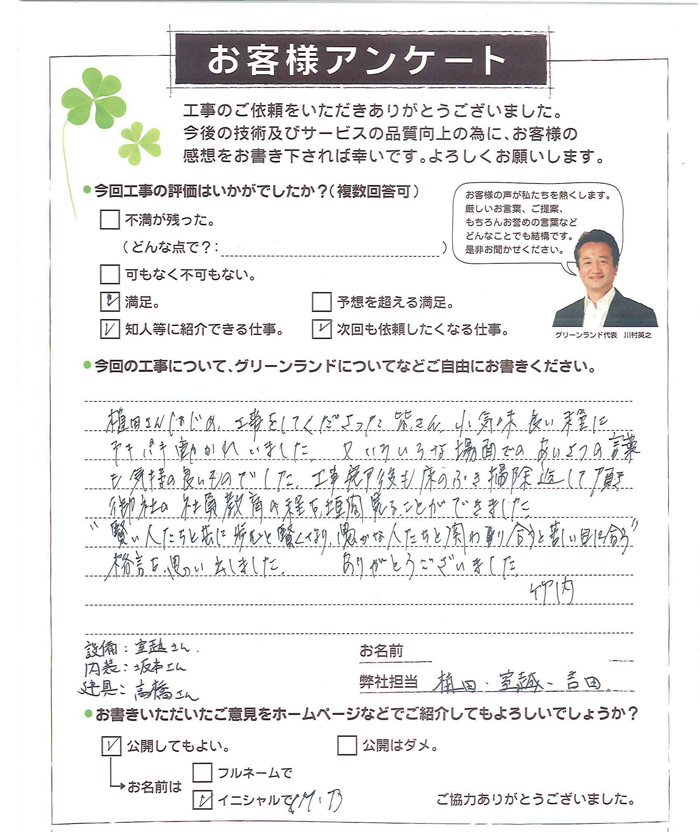 お客様アンケート
工事のご依頼をいただきありがとうございました。
今後の技術及びサービスの品質向上の為に、お客様の
感想をお書き下されば幸いです。よろしくお願いします。
今回工事の評価はいかがでしたか?(複数回答可)
不満が残った。
(どんな点で?: )
可もなく不可もない。
満足。
予想を超える満足。
知人等に紹介できる仕事。
次回も依頼したくなる仕事。
お客様の声が私たちを熱くします。
厳しいお言葉、ご提案、
もちろんお誉めの言葉など
どんなことでも結構です。
是非お聞かせください。
グリーンランド代表 川村英之
今回の工事について、グリーンランドについてなどご自由にお書きください。
植田さんはじめ、工事をしてくださった皆さん、小気味良い程に
テキパキ働かれいました。又いろいろな場面でのあいさつの言葉
も気持の良いものでした。工事完了後も床のふき掃除迄して頂き
御社の社員教育の程を垣間見ることができました
"賢い人たちと共に歩むと賢くなり、愚かな人たちと関わり合うと苦い目に合う"
格言を思い出しました。 ありがとうございました
竹内
設備:室越さん
内装:坂本さん
建具:高橋さん
お名前
弊社担当 植田・室越・吉田
お書きいただいたご意見をホームページなどでご紹介してもよろしいでしょうか?
公開してもよい。
公開はダメ。
お名前は
フルネームで
イニシャルで
ご協力ありがとうございました。